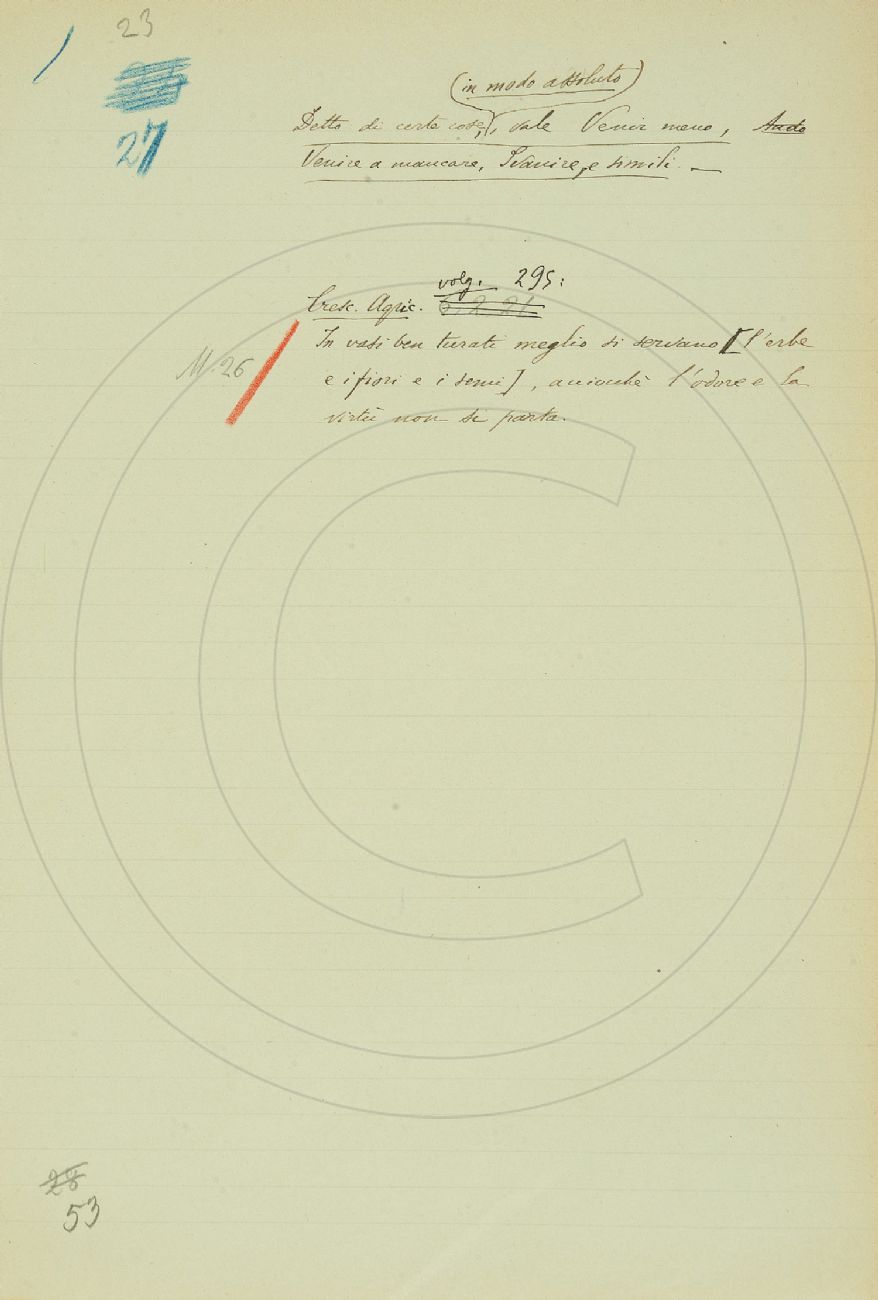 23
27
(in modo assoluto)
Detto di certe cose, vale Venir meno,
Venire a mancare, Svanire, e simili. —
volg. 295:
Cresc. Agric. 6. 2. 21
In vasi ben turati meglio si servano [l'erbe
M. 26
e i fiori e i semi], acciocchè l'odore e la
virtù non si parta.
28
53